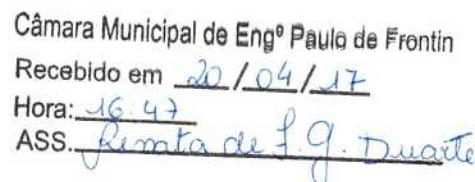 Câmara Municipal de Engº Paulo de Frontin
Recebido em 20/04/17
Hora: 16:47
ASS. Renata de F. G. Duarte